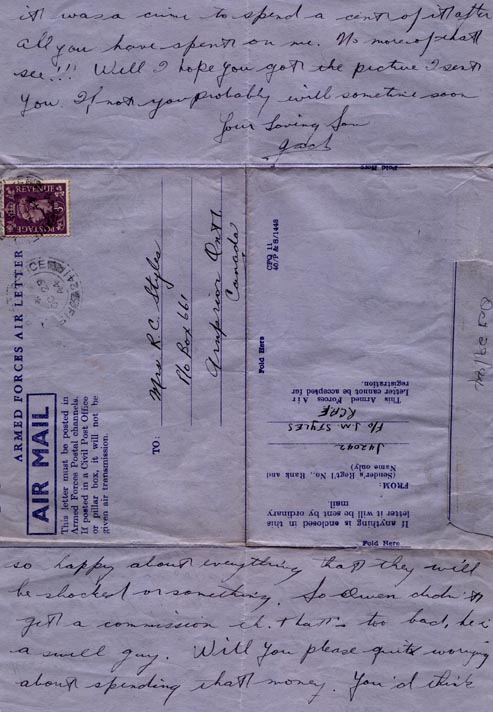 it was a crime to spend a cent of it after
all you have spent on me. No more of that
see!!! Well I hope you got the picture I sent
you. If not you probably will sometime soon
Your Loving Son
Jack
Fold Here
REVENUE
POSTAGE
ARMED FORCES AIR LETTER
AIR MAIL
This letter must be posted in
Armed Forces Postal channels.
If posted in a Civil Post Office
or pillar box, it will not be
given air transmission.
TO:
Mrs R.C. Styles
PO Box 661
Arnprior Ont.
Canada
CFQ 11
40/P & S/1448
Fold Here
This Armed Forces Air
Letter cannot be accepted for
registration.
FROM:
(Sender's Reg'l No., Rank and
Name only)
J42042
F/O J.M. STYLES
RCAF
If anything is enclosed in this
letter it will be sent by ordinary
mail
Fold Here
Oct 29/44
so happy about everything that they will
be shocked or something. So Owen didn't
get a commission eh. that's too bad, he is
a swell guy. Will you please quit worrying
about spending that money. You'd think